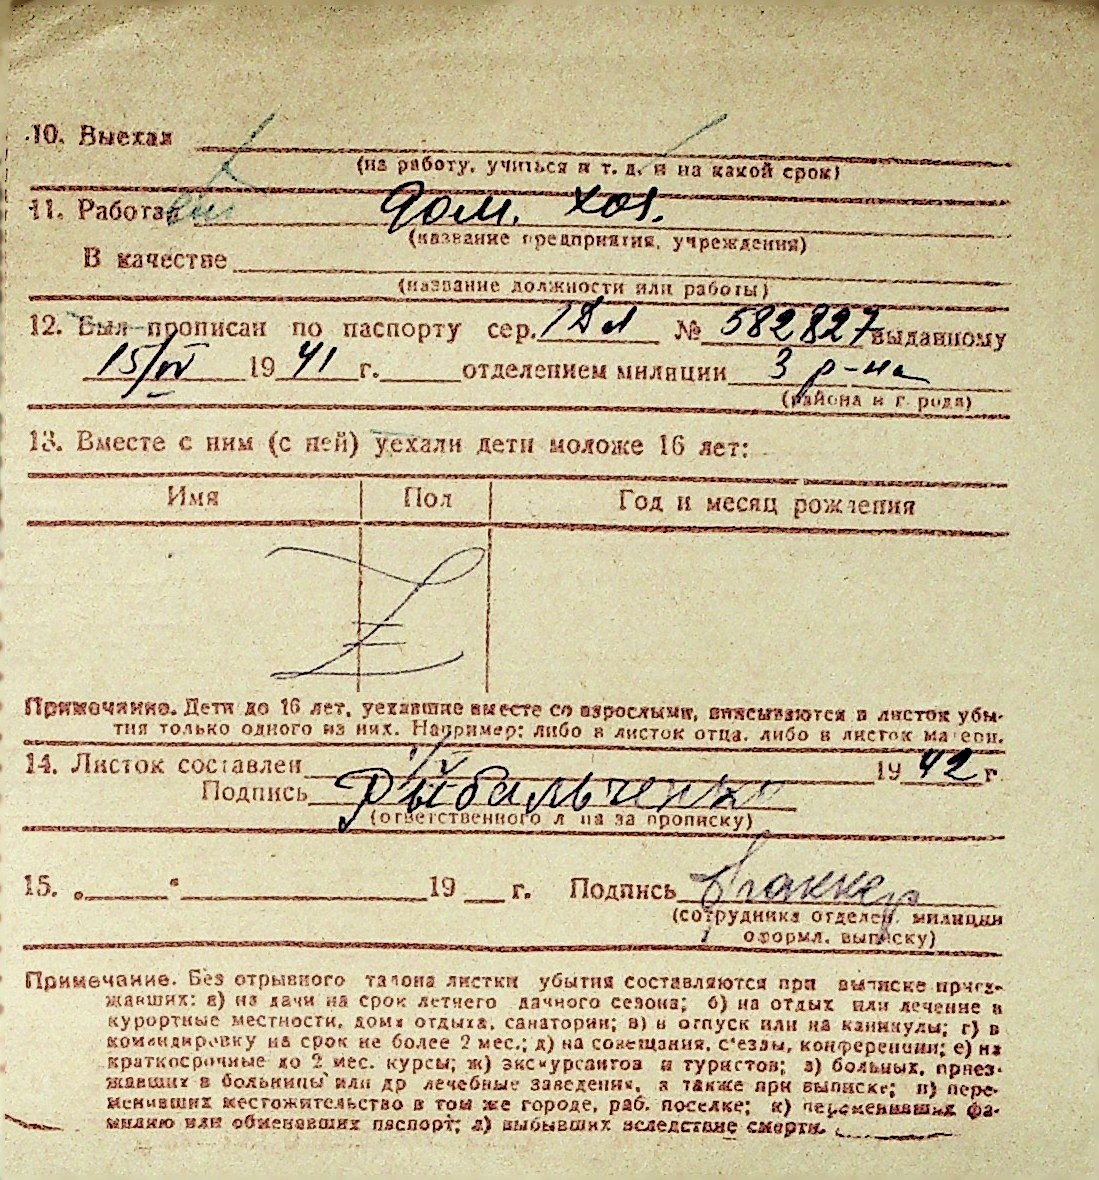 10. Выехал
(на работу, учиться и т. д. и на какой срок)
11. Работал дом. хоз.
(название предприятия, учреждения)
В качестве
(название должности или работы)
12. Был прописан по паспорту сер. № 582827 выданному
15/IV 1941 г. отделением милиции 3 р-на
(района и города)
13. Вместе с ним (с ней) уехали дети моложе 16 лет:
Имя Пол Год и месяц рождения
Примечание. Дети до 16 лет, уехавшие вместе со взрослыми, вписываются в листок убы-
тия только одного из них. Например: либо в листок отца, либо в листок матери.
14. Листок составлен 1942 г.
Подпись Рыбальченко
(ответственного лица за прописку)
15. „ “ 19 г. Подпись
(сотрудника отделен. милиции
оформл. выписку)
Примечание. Без отрывного талона листки убытия составляются при выписке приез-
жавших: а) на дачи на срок летнего дачного сезона; б) на отдых или лечение в
курортные местности, дома отдыха, санатории; в) в отпуск или на каникулы; г) в
командировку на срок не более 2 мес.; д) на совещания, с'езды, конференции; е) на
краткосрочные до 2 мес. курсы; ж) экскурсантов и туристов; з) больных, приез-
жавших в больницы или др лечебные заведения, а также при выписке; и) пере-
менивших местожительство в том же городе, раб. поселке; к) переменивших фа-
милию или обменявших паспорт; л) выбывших вследствие смерти.